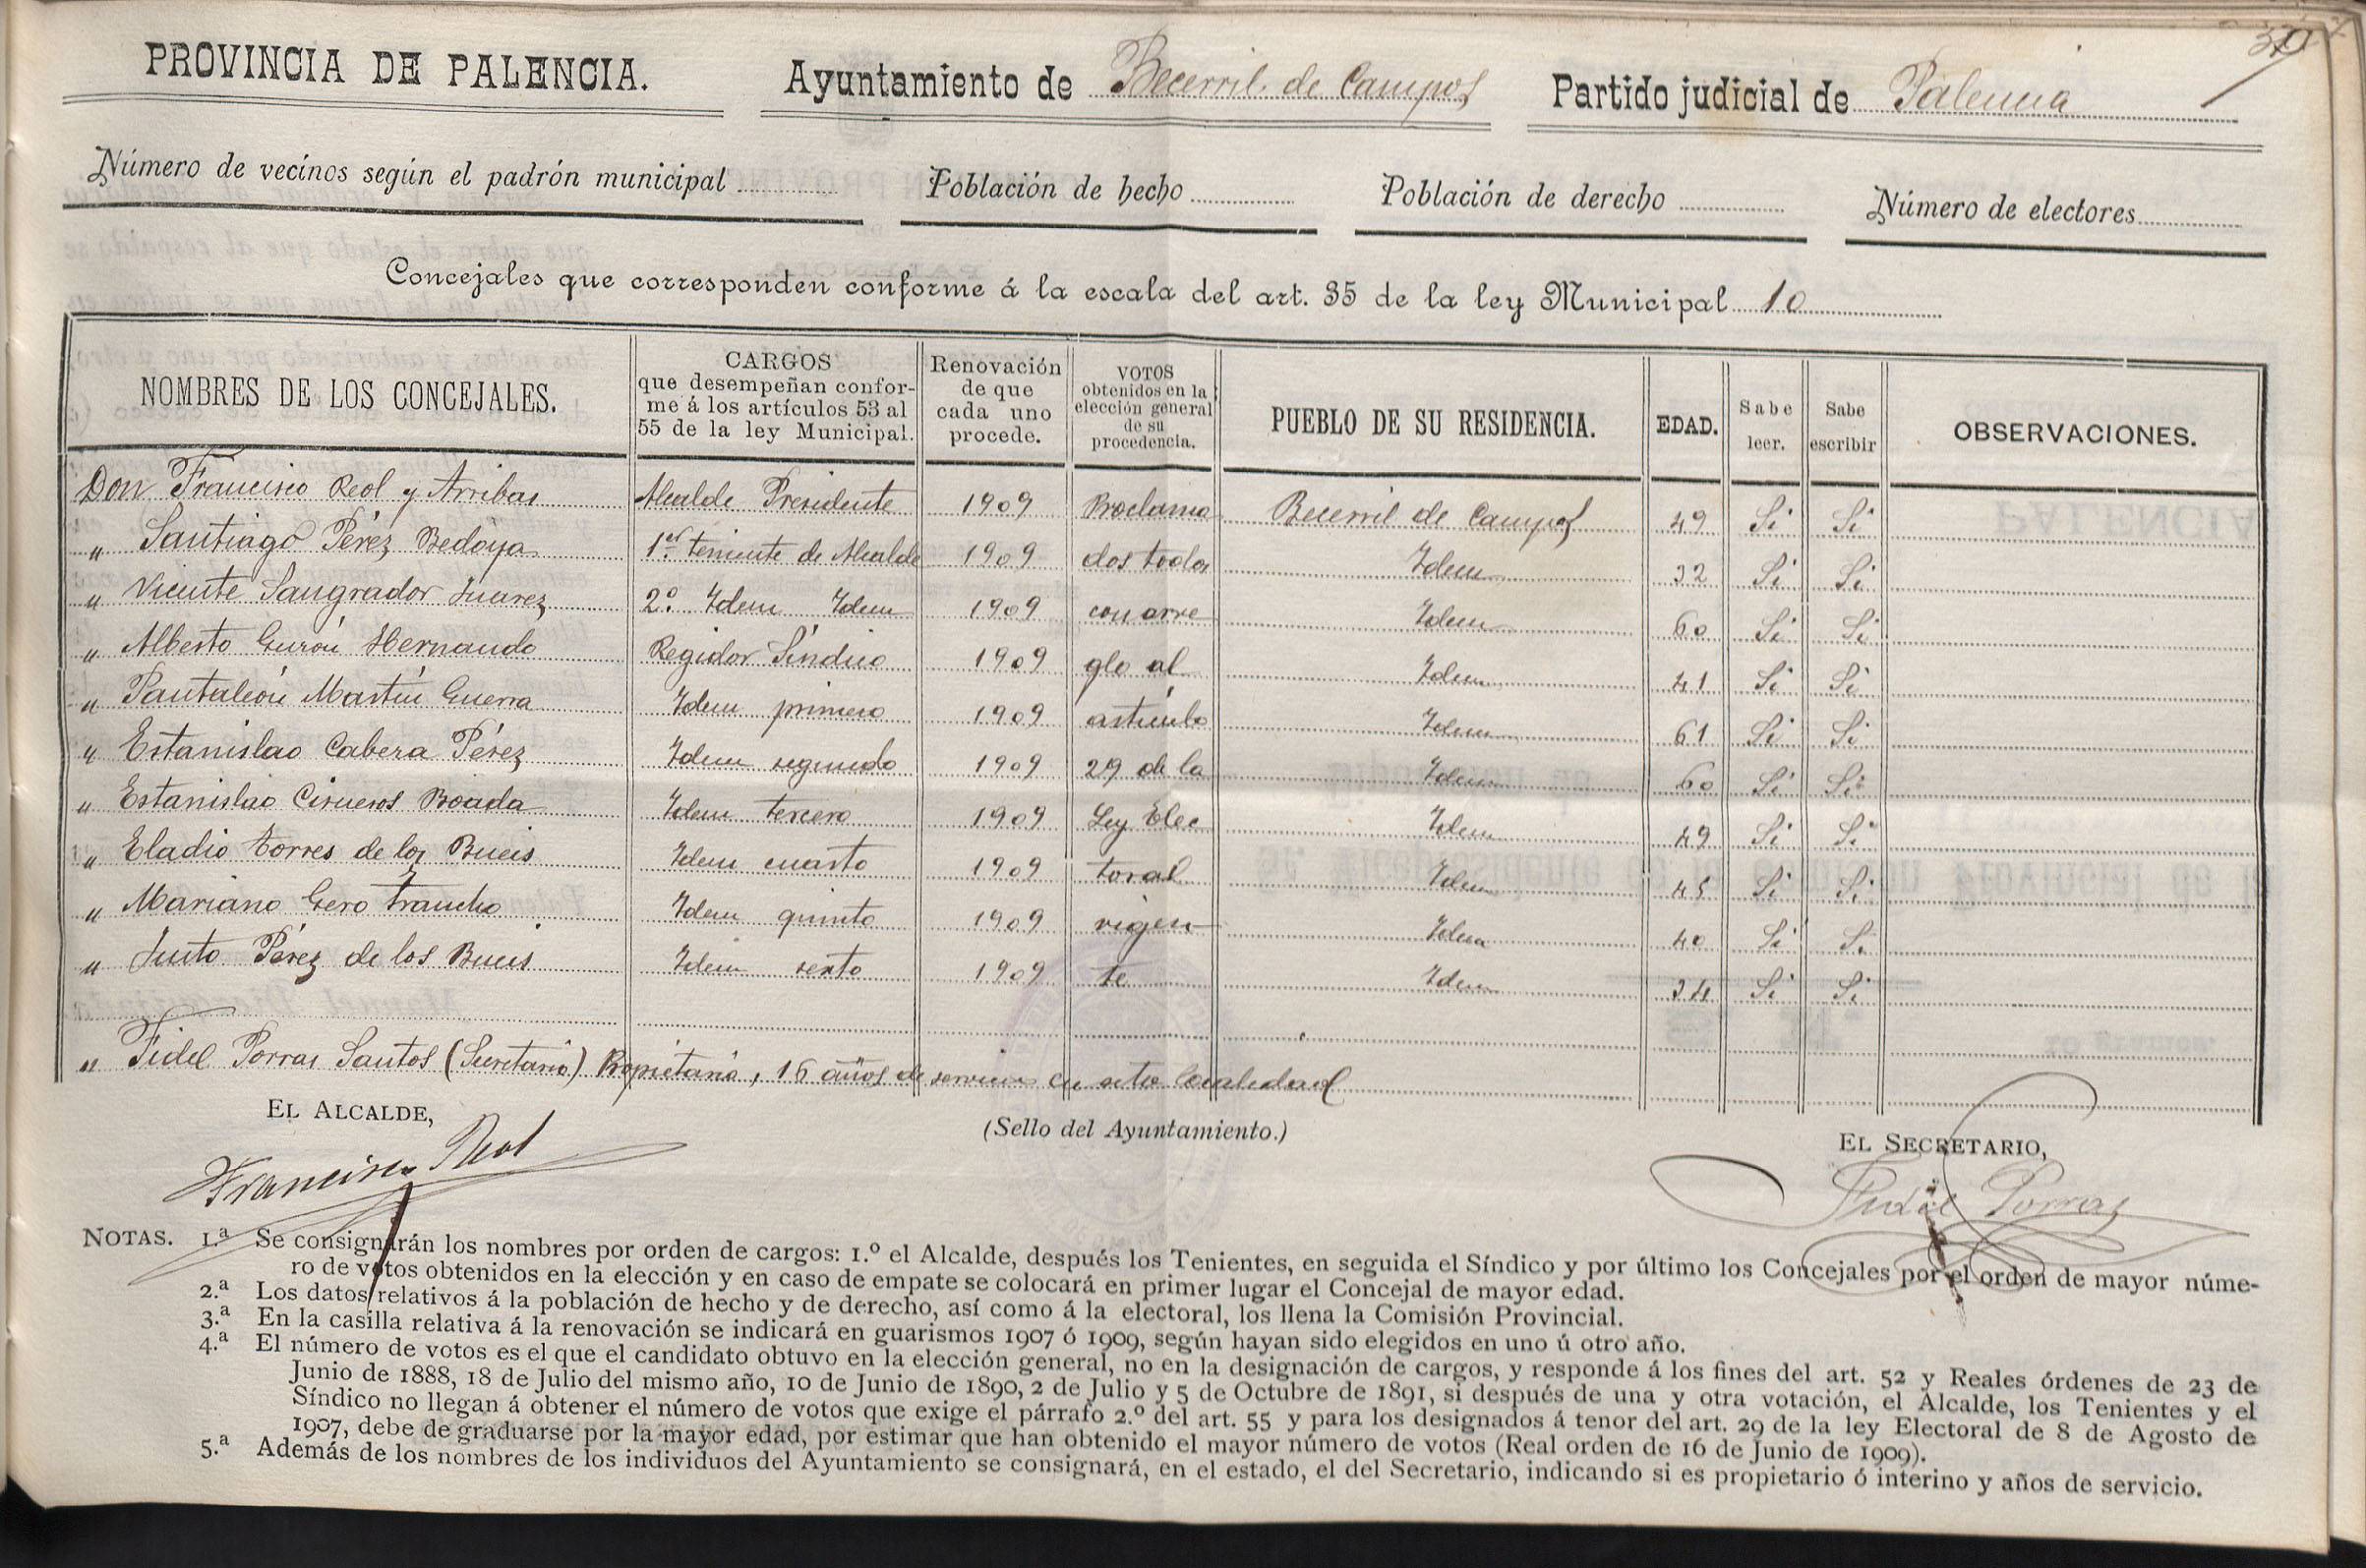 PROVINCIA DE PALENCIA. Ayuntamiento de Becerril de Campos Partido judicial de Palencia
Número de vecinos según el padrón municipal Población de hecho Población de derecho Número de electores
Concejales que corresponden conforme á la escala del art. 35 de la ley Municipal 10
NOMBRES DE LOS CONCEJALES.
CARGOS
que desempeñan confor-
me á los artículos 53 al
55 de la ley Municipal.
Renovación
de que
cada uno
procede.
VOTOS
obtenidos en la
elección general
de su
procedencia.
PUEBLO DE SU RESIDENCIA.
EDAD.
Sabe
leer.
Sabe
escribir
OBSERVACIONES.
Don Francisco Reol y Arribas Alcalde Presidente 1909 Proclama Becerril de Campos 49 Si Si
" Santiago Pérez Bedoya 1er teniente de Alcalde 1909 dos todos Idem 32 Si Si
" Vicente Sangrador Juarez 2º Idem Idem 1909 con arre Idem 60 Si Si
" Alberto Gurón Hernando Regidor Síndico 1909 glo al Idem 41 Si Si
" Pantaleón Martín Guerra Idem primero 1909 artículo Idem 61 Si Si
" Estanislao Cabera Pérez Idem segundo 1909 29 de la Idem 60 Si Si
" Estanislao Cisneros Boada Idem tercero 1909 Ley Elec Idem 49 Si Si
" Eladio Torres de los Bueis Idem cuarto 1909 toral Idem 45 Si Si
" Mariano Gero Francho Idem quinto 1909 vigen Idem 40 Si Si
" Justo Pérez de los Bueis Idem sexto 1909 te Idem 34 Si Si
" Fidel Porras Santos (Secretario) Propietario, 16 años de servicio en esta localidad
EL ALCALDE,
Francisco Reol
(Sello del Ayuntamiento.)
EL SECRETARIO,
Fidel Porras
NOTAS. 1.ª Se consignarán los nombres por orden de cargos: 1.º el Alcalde, después los Tenientes, en seguida el Síndico y por último los Concejales por el orden de mayor núme-
ro de votos obtenidos en la elección y en caso de empate se colocará en primer lugar el Concejal de mayor edad.
2.ª Los datos relativos á la población de hecho y de derecho, así como á la electoral, los llena la Comisión Provincial.
3.ª En la casilla relativa á la renovación se indicará en guarismos 1907 ó 1909, según hayan sido elegidos en uno ú otro año.
4.ª El número de votos es el que el candidato obtuvo en la elección general, no en la designación de cargos, y responde á los fines del art. 52 y Reales órdenes de 23 de
Junio de 1888, 18 de Julio del mismo año, 10 de Junio de 1890, 2 de Julio y 5 de Octubre de 1891, si después de una y otra votación, el Alcalde, los Tenientes y el
Síndico no llegan á obtener el número de votos que exige el párrafo 2.º del art. 55 y para los designados á tenor del art. 29 de la ley Electoral de 8 de Agosto de
1907, debe de graduarse por la mayor edad, por estimar que han obtenido el mayor número de votos (Real orden de 16 de Junio de 1909).
5.ª Además de los nombres de los individuos del Ayuntamiento se consignará, en el estado, el del Secretario, indicando si es propietario ó interino y años de servicio.